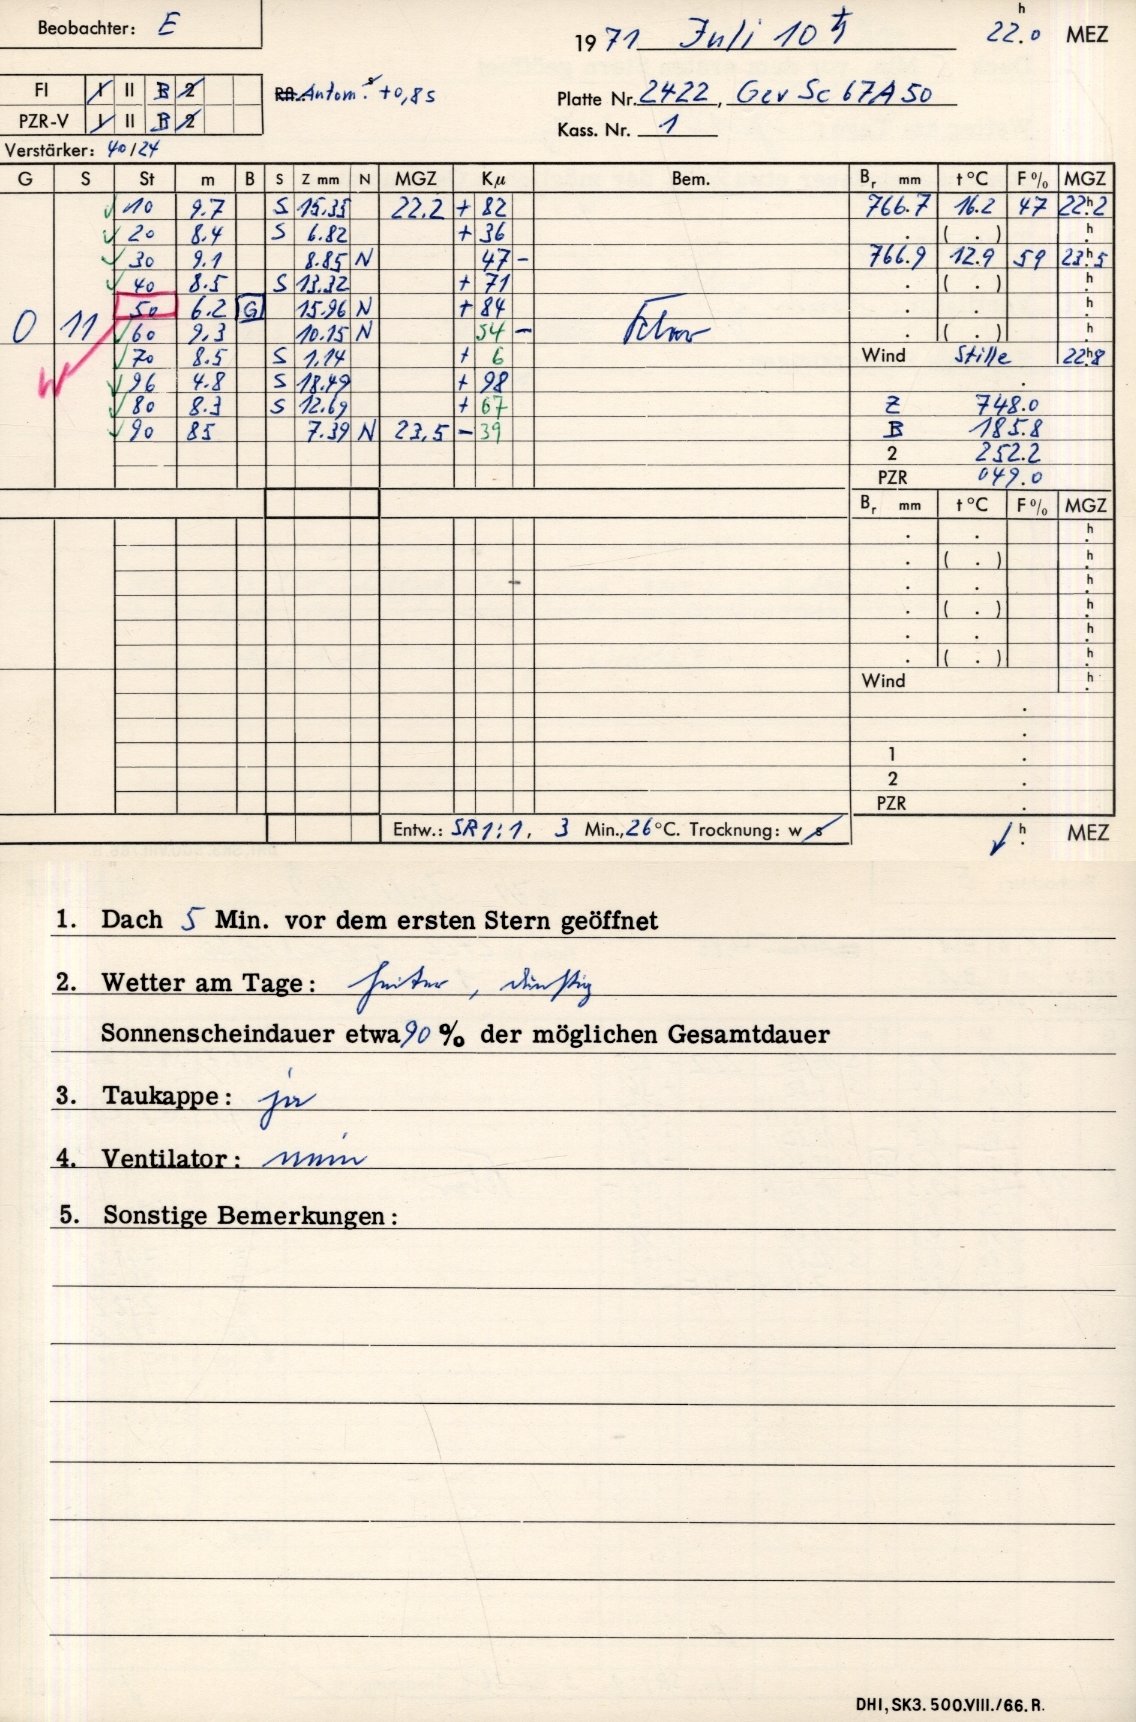 Beobachter: E
1971 Juli 10 ♄ 22.0 h MEZ
FI I II B 2
R.A. Autom. s +0,8 s
Platte Nr. 2422, Gev Sc 67A50
PZR-V I II B 2
Kass. Nr. 1
Verstärker: 40/24
G S St m B S Z mm N MGZ Kµ Bem. Br mm t °C F % MGZ
10 9.7 S 15.35 22.2 + 82 766.7 16.2 47 22h.2
20 8.4 S 6.82 + 36 . ( . ) h.
30 9.1 8.85 N 47 - 766.9 12.9 59 23h.5
40 8.5 S 13.32 + 71 . ( . ) h.
50 6.2 G 15.96 N + 84 . . h.
0 11 60 9.3 10.15 N 54 - . ( . ) h.
70 8.5 S 1.14 + 6 Wind Stille 22h.8
96 4.8 S 18.49 + 98 .
80 8.3 S 12.69 + 67 Z 748.0
90 85 7.39 N 23.5 - 39 B 185.8
2 252.2
PZR 049.0
Br mm t °C F % MGZ
. . h.
. ( . ) h.
. . h.
. ( . ) h.
. . h.
. ( . ) h.
Wind h.
.
.
1 .
2 .
PZR .
Entw.: SR 1:1, 3 Min., 26 °C. Trocknung: w s
h. MEZ
1. Dach 5 Min. vor dem ersten Stern geöffnet
2. Wetter am Tage: heiter, dunstig
Sonnenscheindauer etwa 90 % der möglichen Gesamtdauer
3. Taukappe: ja
4. Ventilator: nein
5. Sonstige Bemerkungen:
DHI, SK3. 500.VIII./66. R.